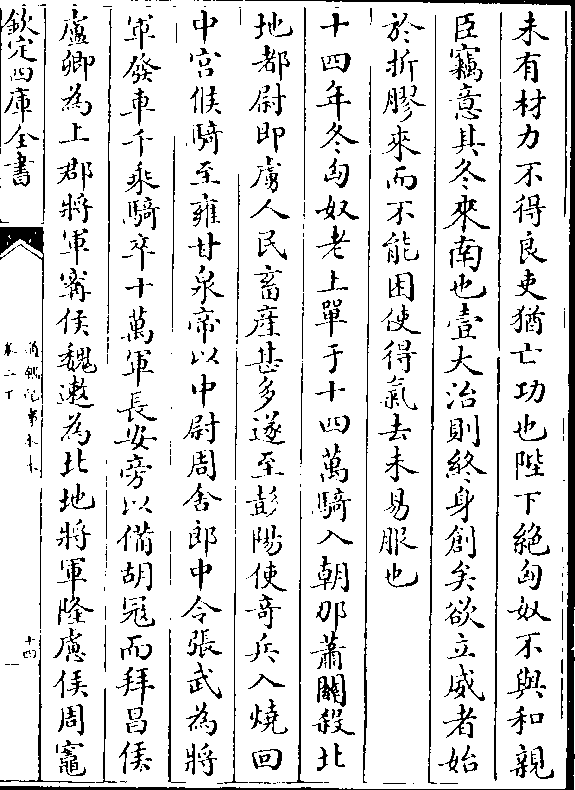 未有材力不得良吏猶亡功也陛下絶匈奴不與和親
臣竊意其冬來南也壹大治則終身創矣欲立威者始
於折膠來而不能困使得氣去未易服也
十四年冬匈奴老上單于十四萬騎入朝那蕭關殺北
地都尉卬虜人民畜產甚多遂至彭陽使奇兵入燒回
中宫候騎至雍甘泉帝以中尉周舍郎中令張武為將
軍發車千乘騎卒十萬軍長安旁以備胡冦而拜昌侯
盧卿為上郡將軍甯侯魏遬為北地將軍隆慮侯周竈
欽定四庫全書
通鑑紀事本末
卷二下
十四